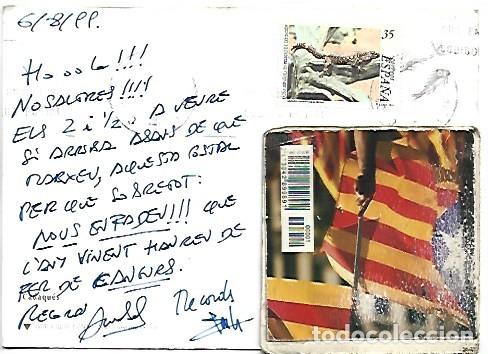 6/-8/99.
Hooola!!!
NOSALTRES!!!!
ELS 2 i 1/2. A VEURE
SI ARRIBA ABANS DE QUE
MARXEU, AQUESTA POSTAL
PER QUE SOBRETOT:
NOUS ENFADEU!!! QUE
L'ANY VINENT HAUREU DE
FER DE
Cadaqués
Records
35
ESPAÑA
todocoleccion